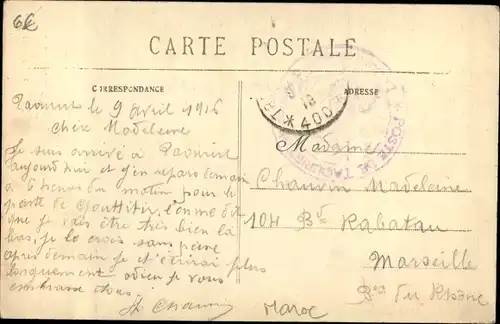 6€
CARTE POSTALE
CORRESPONDANCE
ADRESSE
Taourirt le 9 Avril 1916
Chère Madeleine
Je suis arrivé à Taourirt
aujourd'hui et j'en repars demain
à 6 heures du matin pour le
poste de l'on me dit
que je vais être très bien là
bas, je le crois sans peine
après demain je t'écrirai plus
longuement adieu je vous
embrasse tous.
Chauvin
Madame
Chauvin Madeleine
104 Bd Rabatau
Marseille
Bes du Rhône
Maroc
*400*
POSTE DE